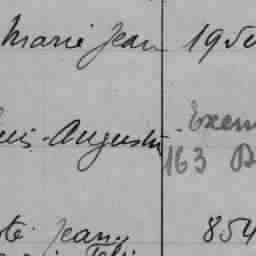 Marie Jean 195
uis-Augustin Exem
163 B
té Jean 854